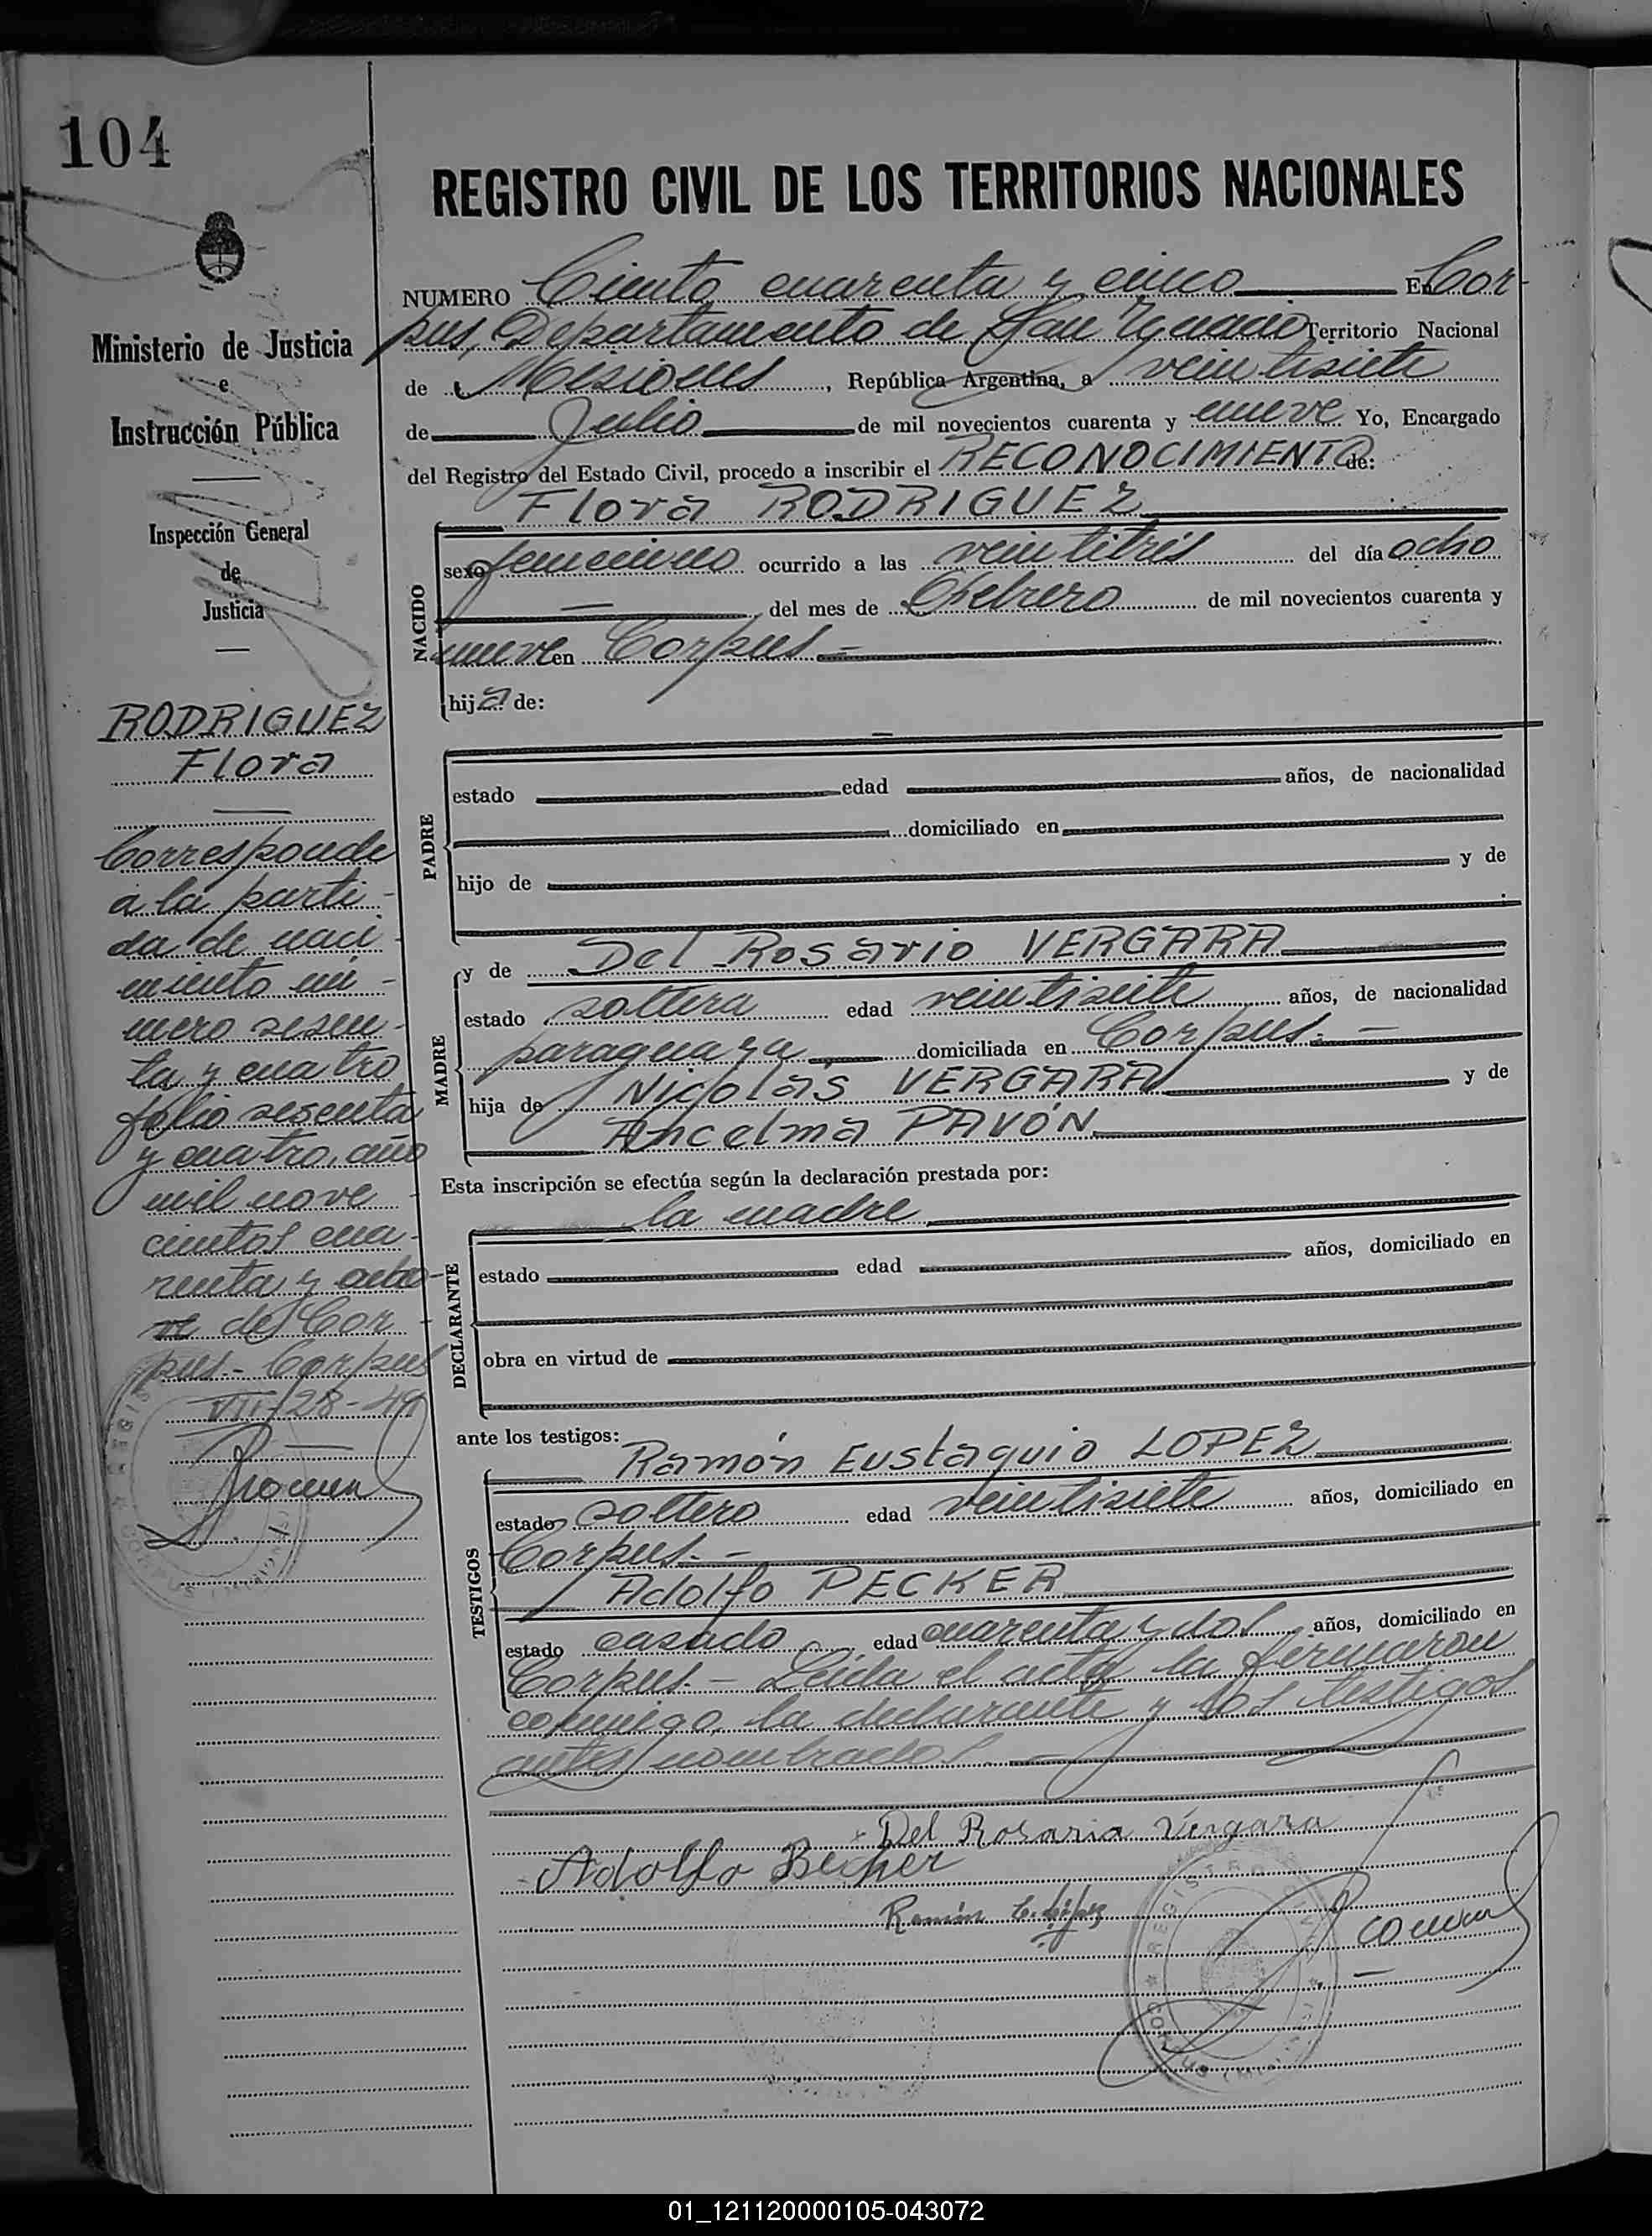 104
Ministerio de Justicia
e
Instrucción Pública
Inspección General
de
Justicia
RODRIGUEZ
Flora
Corresponde
a la parti-
da de naci-
miento nú-
mero sesen-
ta y cuatro
folio sesenta
y cuatro, año
mil nove-
cientos cua-
renta y
de Cor-
pus.- Corpus
VII/28-49
REGISTRO CIVIL DE LOS TERRITORIOS NACIONALES
NUMERO Ciento cuarenta y cinco En Cor-
pus, Departamento de San Ygnacio Territorio Nacional
de Misiones, República Argentina, a veintisiete
de Julio de mil novecientos cuarenta y nueve Yo, Encargado
del Registro del Estado Civil, procedo a inscribir el RECONOCIMIENTO de:
Flora RODRIGUEZ
NACIDO
sexo femenino ocurrido a las veintitrés del día ocho
del mes de Febrero de mil novecientos cuarenta y
nueve en Corpus.-
hija de:
PADRE
estado edad años, de nacionalidad
domiciliado en
hijo de y de
MADRE
y de Del Rosario VERGARA
estado soltera edad veintisiete años, de nacionalidad
paraguaya domiciliada en Corpus.-
hija de Nicolás VERGARA y de
Ancelma PAVÓN
Esta inscripción se efectúa según la declaración prestada por:
la madre
DECLARANTE
estado edad años, domiciliado en
obra en virtud de
ante los testigos:
Ramón Eustaquio LOPEZ
TESTIGOS
estado soltero edad veintisiete años, domiciliado en
Corpus.-
Adolfo PECKER
estado casado edad cuarenta y dos años, domiciliado en
Corpus.- Leída el acta la firmaron
conmigo, la declarante y los testigos
antes nombrados
Del Rosario Vergara
Adolfo Becher
Ramón E. López
01_121120000105-043072